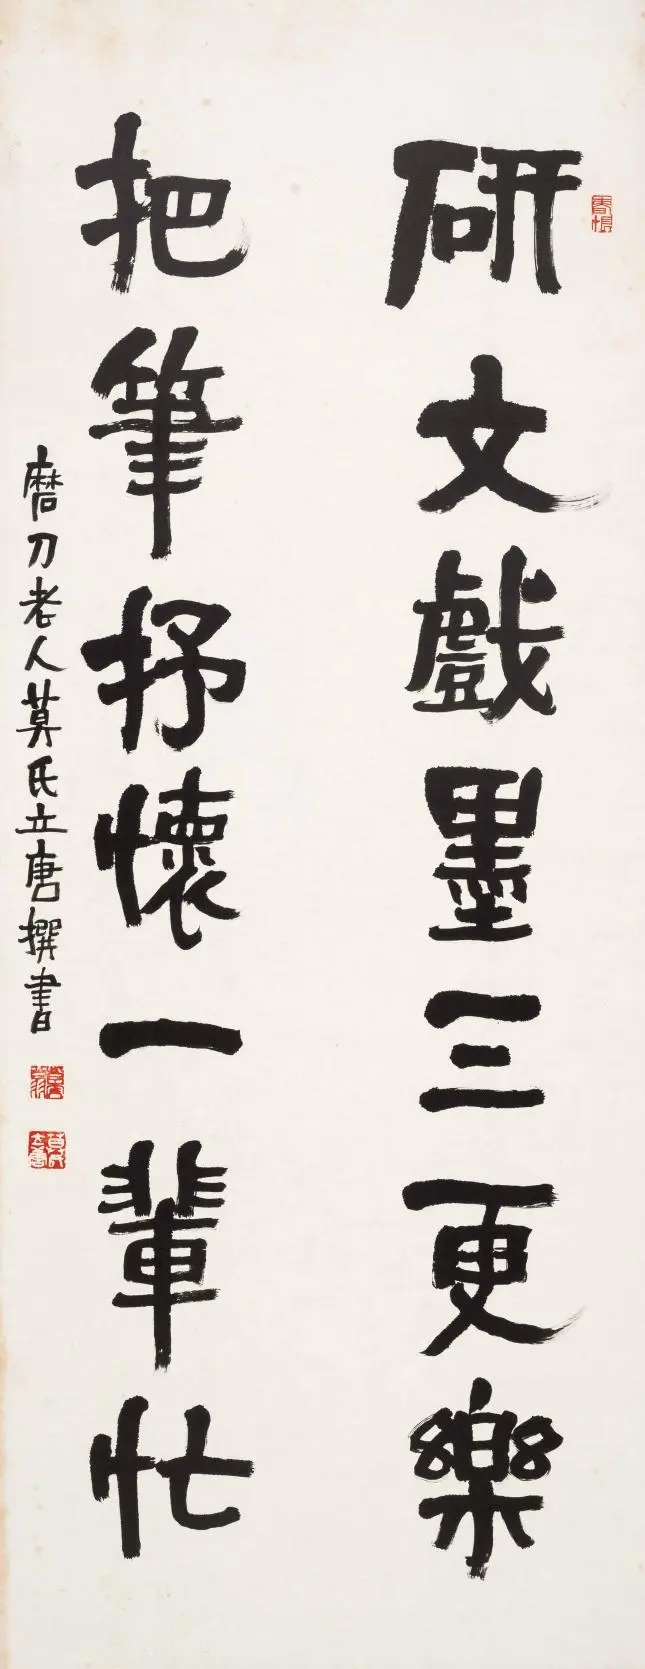 研文戲墨三更樂
把筆抒懷一輩忙
磨刀老人莫氏立唐撰書